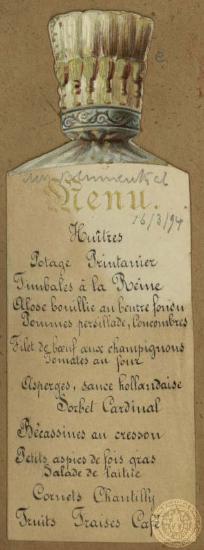 Menu.
16/3/94
Huîtres
Potage Printanier
Timbales à la Reine
Alose bouillie au beurre fondu
Pommes persillade, Concombres
Filet de bœuf aux champignons
Tomates au four
Asperges, sauce hollandaise
Sorbet Cardinal
Bécassines au cresson
Petits aspics de fois gras
Salade de laitue
Cornets Chantilly
Fruits Fraises Café